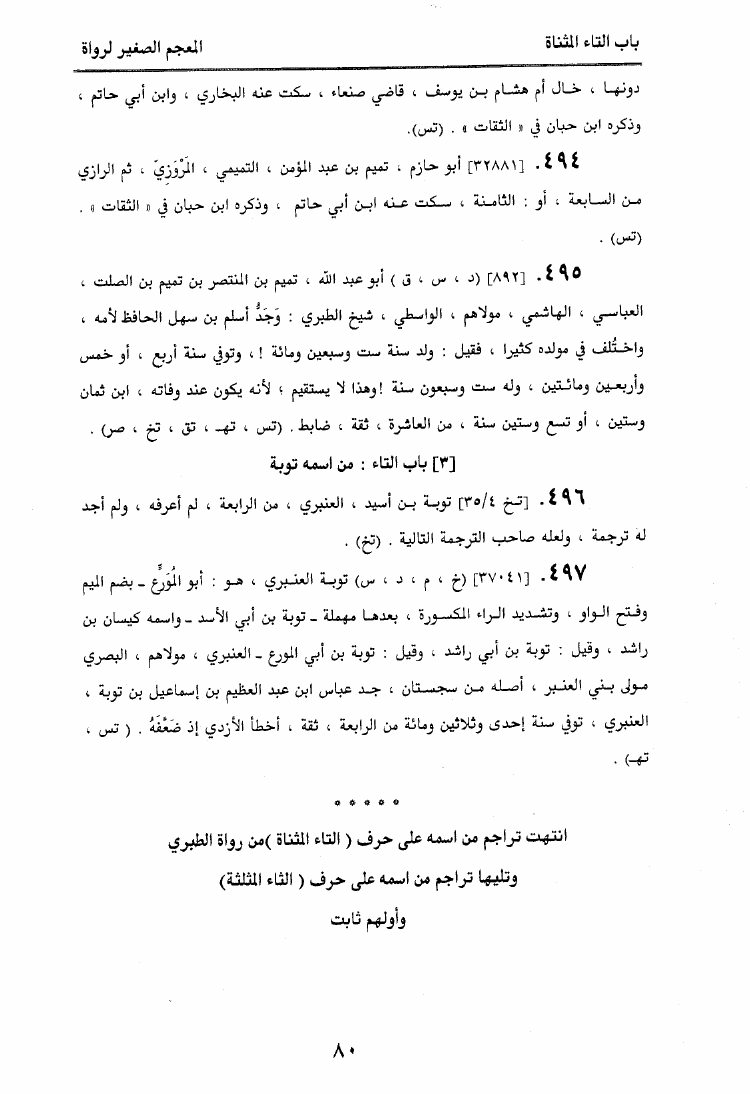 باب التاء المثناة
المعجم الصغير لرواة
دونها ، خال أم هشام بن يوسف ، قاضي صنعاء ، سكت عنه البخاري ، وابن أبي حاتم ،
وذكره ابن حبان في « الثقات » . (تس).
٤٩٤. [٣٢٨٨١] أبو حازم ، تميم بن عبد المؤمن ، التميمي ، المَرْوَزِيّ ، ثم الرازي
من السابعة ، أو : الثامنة ، سكت عنه ابن أبي حاتم ، وذكره ابن حبان في « الثقات » .
(تس) .
٤٩٥. [٨٩٢] (د ، س ، ق ) أبو عبد الله ، تميم بن المنتصر بن تميم بن الصلت ،
العباسي ، الهاشمي ، مولاهم ، الواسطي ، شيخ الطبري : وَجَدُّ أسلم بن سهل الحافظ لأمه ،
واختُلف في مولده كثيرا ، فقيل : ولد سنة ست وسبعين ومائة !، وتوفي سنة أربع ، أو خمس
وأربعين ومائتين ، وله ست وسبعون سنة !وهذا لا يستقيم ؛ لأنه يكون عند وفاته ، ابن ثمان
وستين ، أو تسع وستين سنة ، من العاشرة ، ثقة ، ضابط. (تس ، تهـ ، تق ، تخ ، صر) .
[٣] باب التاء : من اسمه توبة
٤٩٦. [تخ ٣٥/٤] توبة بن أسيد ، العنبري ، من الرابعة ، لم أعرفه ، ولم أجد
له ترجمة ، ولعله صاحب الترجمة التالية . (تخ) .
٤٩٧. [٣٧٠٤١] (خ ، م ، د ، س) توبة العنبري ، هو : أبو المُوَرِّع ـ بضم الميم
وفتح الواو ، وتشديد الراء المكسورة ، بعدها مهملة ـ توبة بن أبي الأسد ـ واسمه كيسان بن
راشد ، وقيل : توبة بن أبي راشد ، وقيل : توبة بن أبي المورع ـ العنبري ، مولاهم ، البصري
مولى بني العنبر ، أصله من سجستان ، جد عباس ابن عبد العظيم بن إسماعيل بن توبة ،
العنبري ، توفي سنة إحدى وثلاثين ومائة من الرابعة ، ثقة ، أخطأ الأزدي إذ ضَعَّفَهُ . ( تس ،
تهـ) .
* * * * *
انتهت تراجم من اسمه على حرف ( التاء المثناة )من رواة الطبري
وتليها تراجم من اسمه على حرف ( الثاء المثلثة)
وأولهم ثابت
٨٠